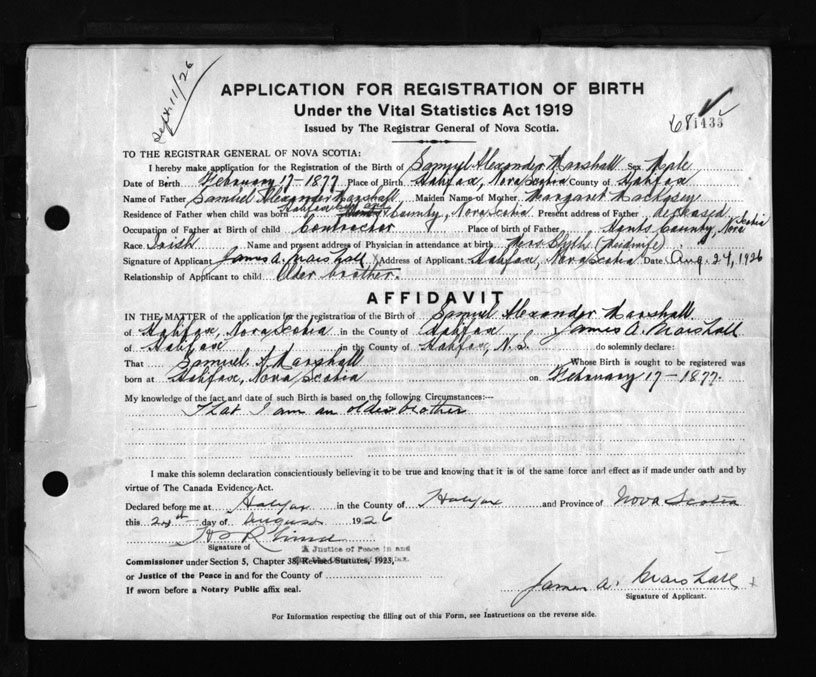 Sept 11/26
APPLICATION FOR REGISTRATION OF BIRTH
Under the Vital Statistics Act 1919
Issued by The Registrar General of Nova Scotia.
68 1433
TO THE REGISTRAR GENERAL OF NOVA SCOTIA:
I hereby make application for the Registration of the Birth of Samuel Alexander Marshall Sex Male
Date of Birth February 17-1877 Place of Birth Halifax, Nova Scotia County of Halifax
Name of Father Samuel Alexander Marshall, Maiden Name of Mother Margaret
Residence of Father when child was born Halifax County, Nova Scotia Present address of Father deceased
Occupation of Father at Birth of child Contractor Place of birth of Father Hants County, Nova Scotia
Race Irish Name and present address of Physician in attendance at birth Mrs Blyth (Midwife)
Signature of Applicant James A. Marshall Address of Applicant Halifax, Nova Scotia Date Aug. 24, 1926
Relationship of Applicant to child Older brother.
AFFIDAVIT
IN THE MATTER of the application for the registration of the Birth of Samuel Alexander Marshall
of Halifax, Nova Scotia in the County of Halifax James A. Marshall
of Halifax in the County of Halifax, N.S. do solemnly declare:
That Samuel A. Marshall Whose Birth is sought to be registered was
born at Halifax, Nova Scotia on February 17-1877.
My knowledge of the fact and date of such Birth is based on the following Circumstances:—
That I am an older brother
I make this solemn declaration conscientiously believing it to be true and knowing that it is of the same force and effect as if made under oath and by
virtue of The Canada Evidence Act.
Declared before me at Halifax in the County of Halifax and Province of Nova Scotia
this 24th day of August 1926
Signature of A Justice of Peace in and
Commissioner under Section 5, Chapter 38, Revised Statutes, 1923,
or Justice of the Peace in and for the County of
If sworn before a Notary Public affix seal.
James A. Marshall
Signature of Applicant.
For Information respecting the filling out of this Form, see Instructions on the reverse side.